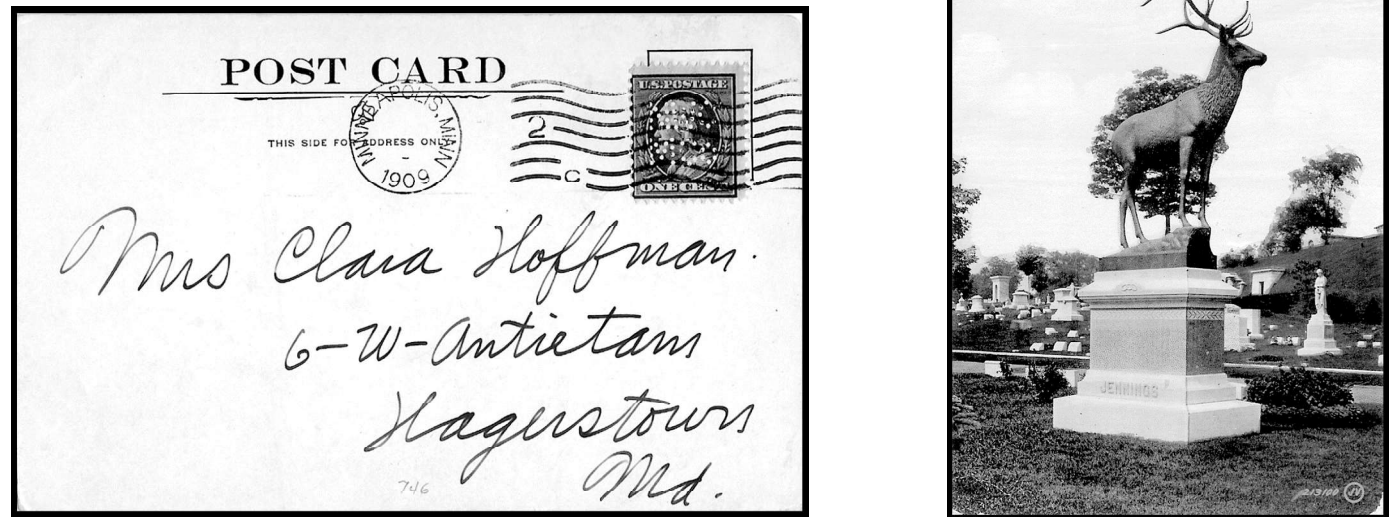 POST CARD
THIS SIDE FOR ADDRESS ONLY
MINNEAPOLIS, MINN
1909
2
C
U.S. POSTAGE
ONE CENT
Mrs Clara Hoffman.
6-W-Antietam
Hagerstown
Md.
746
JENNINGS
213100 JV